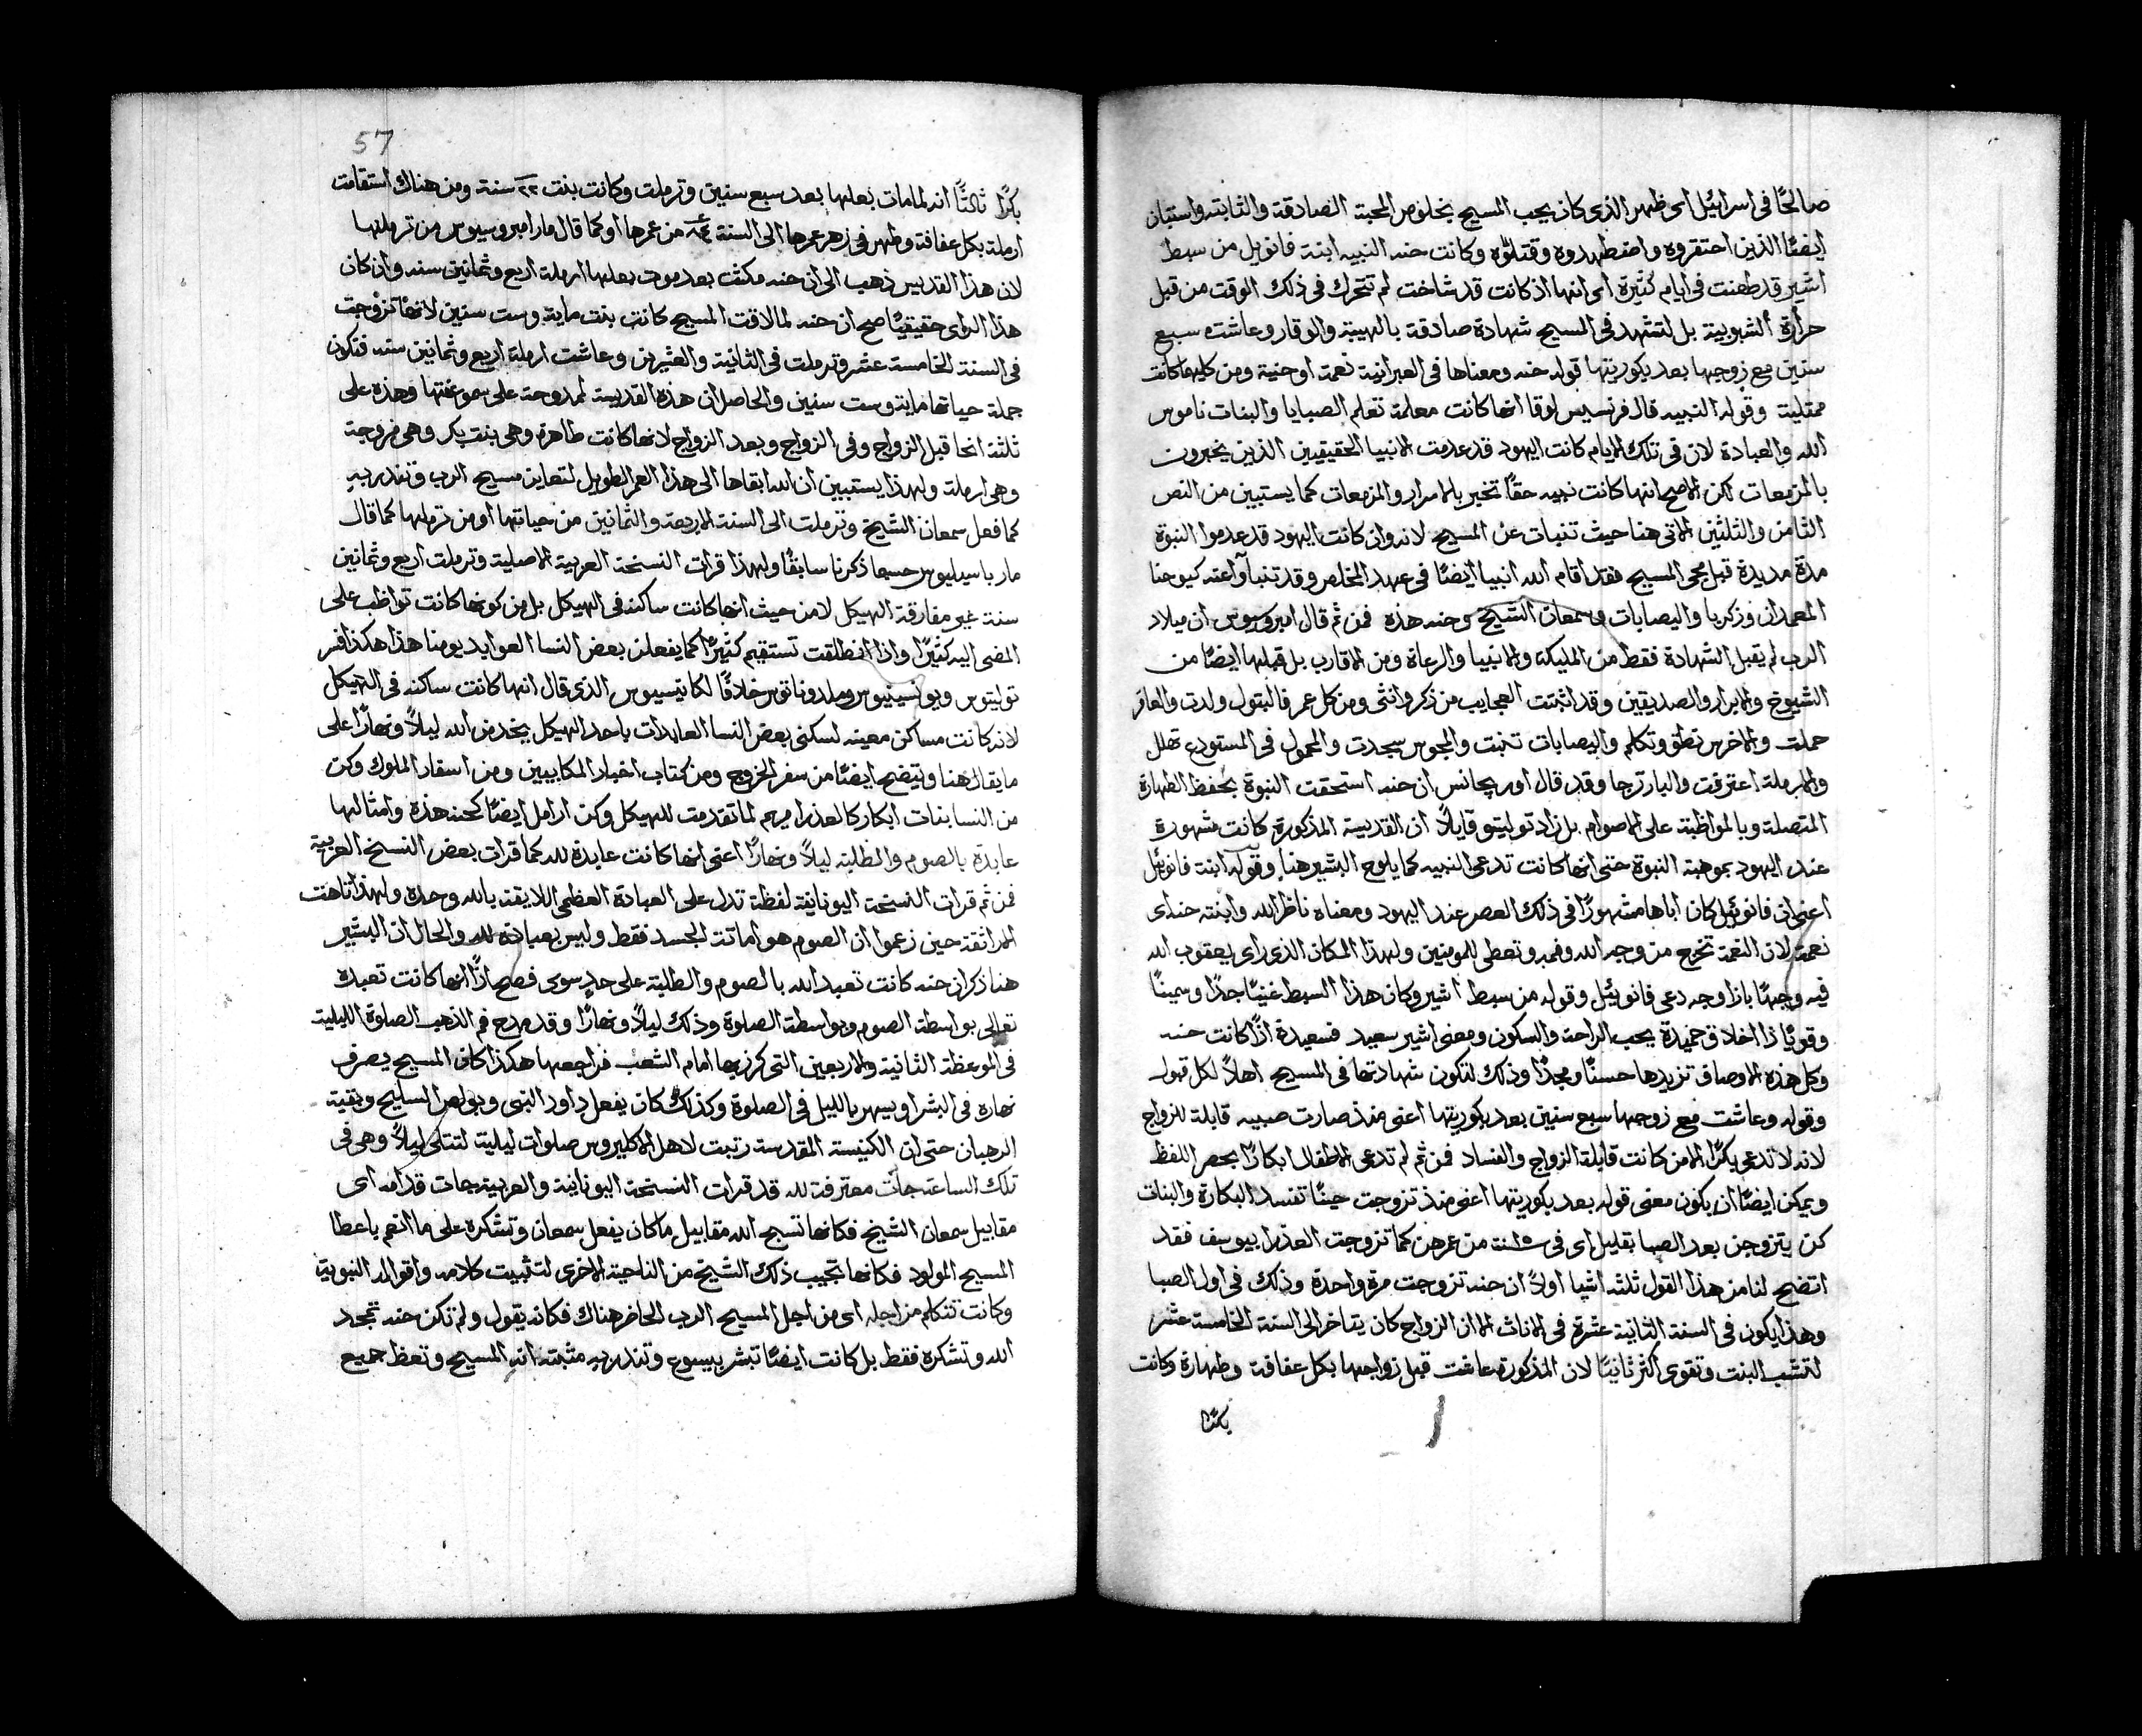 صالحًا في اسرائيل اي ظهر الذي كان يحب المسيح بخلوص المحبة الصادقة والثابته واستبان
ايضًا الذين احتقروه واضطهدوه وقتلوه وكانت حنه النبيه ابنة فانويل من سبط
اشير قد طعنت في ايام كثيرة اي انها اذ كانت قد شاخت لم تتحرك في ذلك الوقت من قبل
حرارة الشبوبية بل لتشهد في المسيح شهادة صادقة بالهيبة والوقار وعاشت سبع
سنين مع زوجها بعد بكوريتها قوله حنه ومعناها في العبرانية نعمة او حنية ومن كليهما كانت
ممتلية وقوله النبيه قال فرنسيس لوقا انها كانت معلمة تعلم الصبايا والبنات ناموس
الله والعبادة لان في تلك الايام كانت اليهود قد عدمت الانبيا الحقيقيين الذين يخبرون
بالمزمعات لكن الاصح انها كانت نبيه حقًا تخبر بالاسرار والمزمعات كما يستبين من النص
الثامن والثلثين الاتي هنا حيث تنبات عن المسيح لانه وان كانت اليهود قد عدموا النبوة
مدة مديدة قبل مجي المسيح فقد اقام الله انبيا ايضًا في عهد المخلص وقد تنباوا عنه كيوحنا
المعمدان وزكريا واليصابات وسمعان الشيخ وحنه هذه فمن ثم قال امبروسيوس ان ميلاد
الرب لم يقبل الشهادة فقط من المليكة والانبيا والرعاة ومن الاقارب بل قبلها ايضًا من
الشيوخ والابرار والصديقين وقد اثبتت العجايب من ذكر وانثى ومن كل عمر فالبتول ولدت والعاقر
حملت والاخرس نطق وتكلم واليصابات تنبت والمجوس سجدت والمحمول في المستودع تهلل
والارملة اعترفت والبار ترجا وقد قال اوريجانس ان حنه استحقت النبوة بحفظ الطهارة
المتصلة وبالمواظبة على الاصوام بل زاد توليتو قايلًا ان القديسة المذكورة كانت مشهورة
عند اليهود بموهبة النبوة حتى انها كانت تدعى النبيه كما يلوح البشير هنا وقوله ابنة فانوئيل
اعني ان فانوئيل كان اباها مشهورًا في ذلك العصر عند اليهود ومعناه ناظر الله وابنته حنه اي
نعمة لان النعمة تخرج من وجه الله وفمه وتعطى للمومنين ولهذا المكان الذي راى يعقوب الله
فيه وجهًا بازا وجه دعي فانوئيل وقوله من سبط اشير وكان هذا السبط غنيًا جدًا وسمينًا
وقويًا ذا اخلاق حميدة يحب الراحة والسكون ومعنى اشير سعيد فسعيدة اذًا كانت حنه
وكل هذه الاوصاف تزيدها حسنًا ومجدًا وذلك لتكون شهادتها في المسيح اهلًا لكل قبول
وقوله وعاشت مع زوجها سبع سنين بعد بكوريتها اعني منذ صارت صبيه قابلة للزواج
لانه لا تدعى بكرًا الا من كانت قابلة الزواج والفساد فمن ثم لم تدعى الاطفال ابكارًا بحصر اللفظ
ويمكن ايضًا ان يكون معنى قوله بعد بكوريتها اعني منذ تزوجت حينًا تفسد البكارة والبنات
كن يتزوجن بعد الصبا بقليل اي في من عمرهن كما تزوجت العذرا بيوسف فقد
اتضح لنا من هذا القول ثلثه اشيا اولًا ان حنه تزوجت مرة واحدة وذلك في اول الصبا
وهذا يكون في السنة الثانية عشرة في الاناث الا ان الزواج كان يتاخر الى السنة الخامسة عشر
لتشب البنت وتقوى اكثر ثانيًا لان المذكورة عاشت قبل زواجها بكل عفافة وطهارة وكانت
بكرًا
57
بكرًا ثالثًا انه لما مات بعلها بعد سبع سنين وترملت وكانت بنت ٢٢ سنة ومن هناك استقامت
ارملة بكل عفافة وطهر في زهر عمرها الى السنة ٨٤ من عمرها او كما قال مار امبروسيوس من ترملها
لان هذا القديس ذهب الى ان حنه مكثت بعد موت بعلها ارملة اربع وثمانين سنه وان كان
هذا الراي حقيقيًا صح ان حنه لما لاقت المسيح كانت بنت ماية وست سنين لانها تزوجت
في السنة الخامسة عشر وترملت في الثانية والعشرين وعاشت ارملة اربع وثمانين سنه فتكون
جملة حياتها ماية وست سنين والحاصل ان هذه القديسة ممدوحة على سمو عفتها وهذه على
ثلثة انحا قبل الزواج وفي الزواج وبعد الزواج لانها كانت طاهرة وهي بنت بكر وهي مزوجة
وهي ارملة ولهذا يستبين ان الله ابقاها الى هذا العمر الطويل لتعاين مسيح الرب وتنذر به
كما فعل سمعان الشيخ وترملت الى السنة الاربعة والثمانين من حياتها او من ترملها كما قال
مار باسيليوس حسبما ذكرنا سابقًا ولهذا قرات النسخة العربية الاصلية وترملت اربع وثمانين
سنة غير مفارقة الهيكل لا من حيث انها كانت ساكنه في الهيكل بل من كونها كانت تواظب على
المضي اليه كثيرًا واذا انطلقت تستقيم كثيرًا كما يفعلن بعض النسا العوابد يومنا هذا هكذا فسر
توليتوس ويونسينيوس وملدوناتوس خلافًا لكايتسيوس الذي قال انها كانت ساكنه في الهيكل
لانه كانت مساكن معينه لسكنى بعض النسا العابدات باحد الهيكل يخدمن الله ليلًا ونهارًا على
ما يقال هنا ويتضح ايضًا من سفر الخروج ومن كتاب اخبار المكابيين ومن اسفار الملوك وكن
من النسا بنات ابكار كالعذرا مريم لما تقدمت للهيكل وكن ارامل ايضًا كحنه هذه وامثالها
عابدة بالصوم والطلبة ليلًا ونهارًا اعني انها كانت عابدة لله كما قرات بعض النسخ العربية
فمن ثم قرات النسخة اليونانية لفظة تدل على العبادة العظمى اللايقة بالله وحده ولهذا تاهت
الهراتقة حين زعموا ان الصوم هو اماتة الجسد فقط وليس بعبادة لله والحال ان البشير
هنا ذكر ان حنه كانت تعبد الله بالصوم والطلبة على حدٍ سوى فصح اذًا انها كانت تعبده
تعالى بواسطة الصوم وبواسطة الصلوة وذلك ليلًا ونهارًا وقد مدح فم الذهب الصلوة الليلية
في الموعظة الثانية والاربعين التي كرز بها امام الشعب فراجعها هكذا كان المسيح يصرف
نهاره في البشر او يسهر بالليل في الصلوة وكذلك كان يفعل داود النبي وبولص السليح وبقية
الرهبان حتى ان الكنيسة المقدسة رتبت لاهل الاكليروس صلوات ليلية لتتلى ليلًا وهي في
تلك الساعة جات معترفة لله قد قرات النسخة اليونانية والعربية جات قدامه اي
مقابيل سمعان الشيخ فكانها تسبح الله مقابيل ما كان يفعل سمعان وتشكره على ما انعم باعطا
المسيح المولود فكانها تجيب ذلك الشيخ من الناحية الاخرى لتثبيت كلامه واقواله النبوية
وكانت تتكلم من اجله اي من اجل المسيح الرب الحاضر هناك فكانه يقول ولم تكن حنه تمجد
الله وتشكره فقط بل كانت ايضًا تبشر بيسوع وتنذر به مثبتة انه المسيح وتعظ جميع